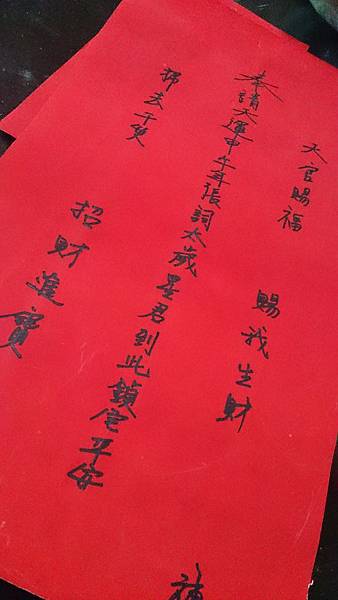 天官賜福 賜我生財
奉請天運甲午年張詞太歲星君到此鎮宅平安
掃去千
招財進寶